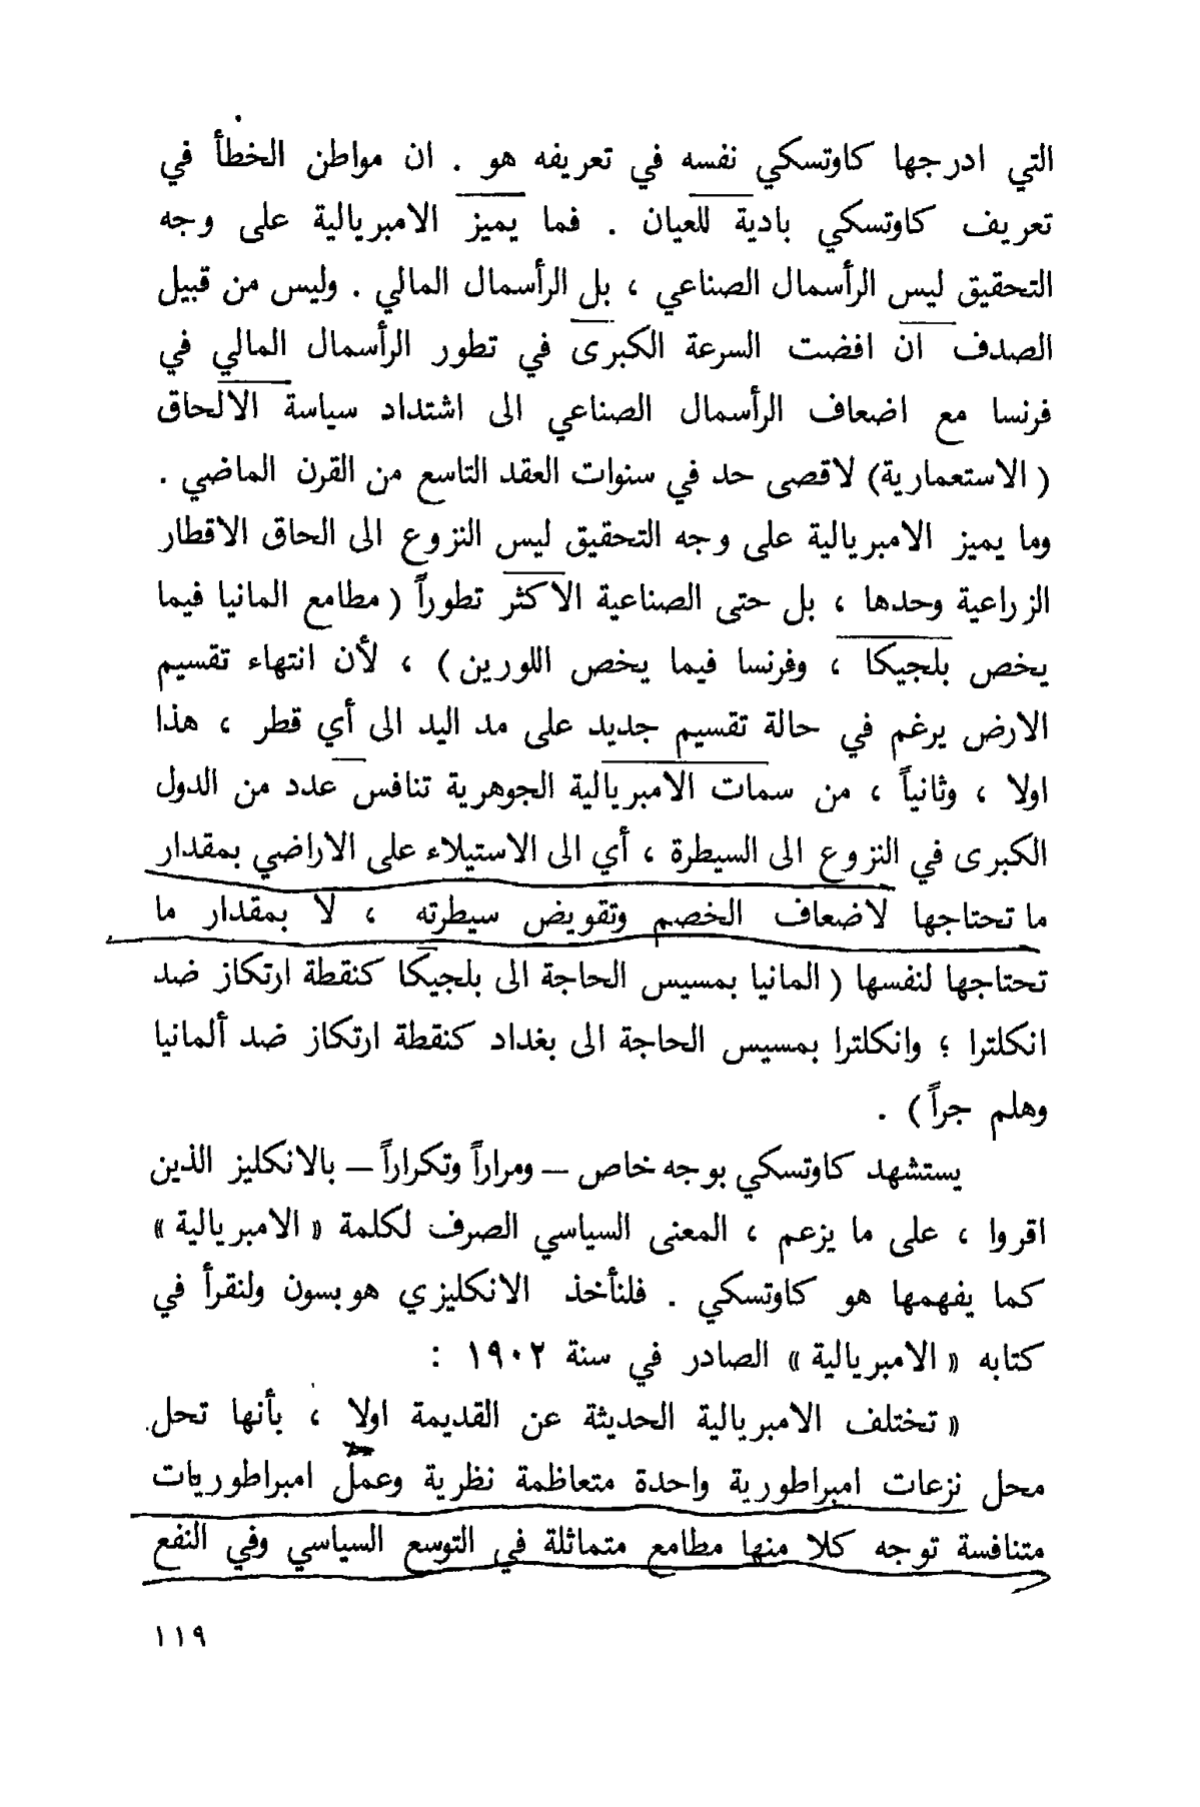 التي ادرجها كاوتسكي نفسه في تعريفه هو . ان مواطن الخطأ في
تعريف كاوتسكي بادية للعيان . فما يميز الامبريالية على وجه
التحقيق ليس الرأسمال الصناعي ، بل الرأسمال المالي . وليس من قبيل
الصدف ان افضت السرعة الكبرى في تطور الرأسمال المالي في
فرنسا مع اضعاف الرأسمال الصناعي الى اشتداد سياسة الالحاق
( الاستعمارية) لاقصى حد في سنوات العقد التاسع من القرن الماضي .
وما يميز الامبريالية على وجه التحقيق ليس النزوع الى الحاق الاقطار
الزراعية وحدها ، بل حتى الصناعية الاكثر تطوراً ( مطامع المانيا فيما
يخص بلجيكا ، وفرنسا فيما يخص اللورين ) ، لأن انتهاء تقسيم
الارض يرغم في حالة تقسيم جديد على مد اليد الى أي قطر ، هذا
اولا ، وثانياً ، من سمات الامبريالية الجوهرية تنافس عدد من الدول
الكبرى في النزوع الى السيطرة ، أي الى الاستيلاء على الاراضي بمقدار
ما تحتاجها لاضعاف الخصم وتقويض سيطرته ، لا بمقدار ما
تحتاجها لنفسها ( المانيا بمسيس الحاجة الى بلجيكا كنقطة ارتكاز ضد
انكلترا ؛ وانكلترا بمسيس الحاجة الى بغداد كنقطة ارتكاز ضد ألمانيا
وهلم جراً ) .
يستشهد كاوتسكي بوجه خاص – ومراراً وتكراراً – بالانكليز الذين
اقروا ، على ما يزعم ، المعنى السياسي الصرف لكلمة « الامبريالية »
كما يفهمها هو كاوتسكي . فلنأخذ الانكليزي هوبسون ولنقرأ في
كتابه « الامبريالية » الصادر في سنة ١٩٠٢ :
« تختلف الامبريالية الحديثة عن القديمة اولا ، بأنها تحل
محل نزعات امبراطورية واحدة متعاظمة نظرية وعمل امبراطوريات
متنافسة توجه كلا منها مطامع متماثلة في التوسع السياسي وفي النفع
١١٩